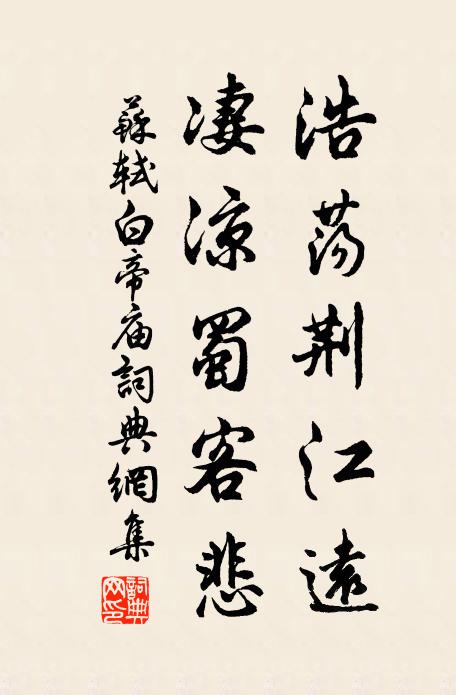 浩荡荆江遠
凄凉蜀客悲
蘇軾白帝庙詞典網集
詞典网印